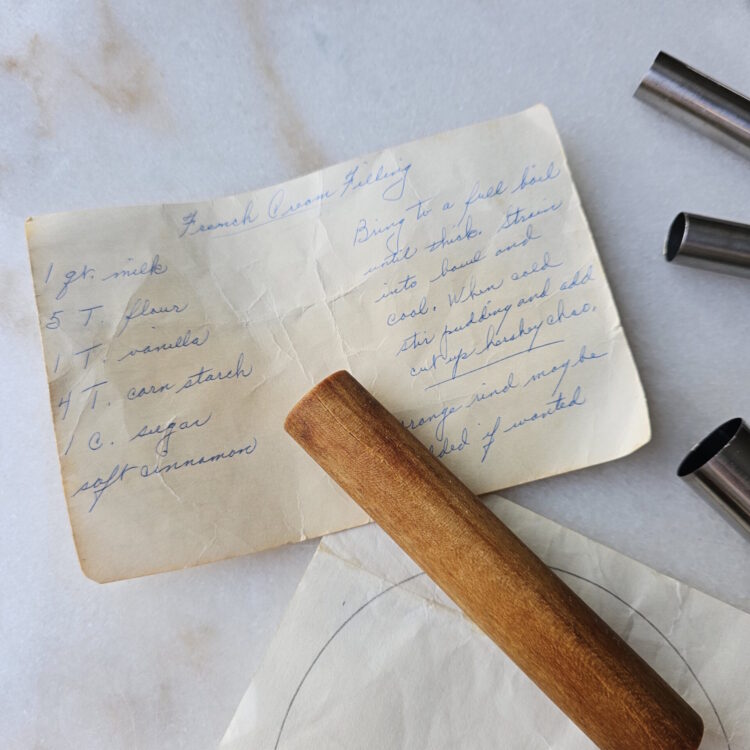 French Cream Filling
1 qt. milk
5 T. flour
1 T. vanilla
4 T. corn starch
1 C. sugar
soft cinnamon
Bring to a full boil
until thick. Strain
into bowl and
cool. When cold
stir pudding and add
cut up hershey choc.
orange rind may be
added if wanted